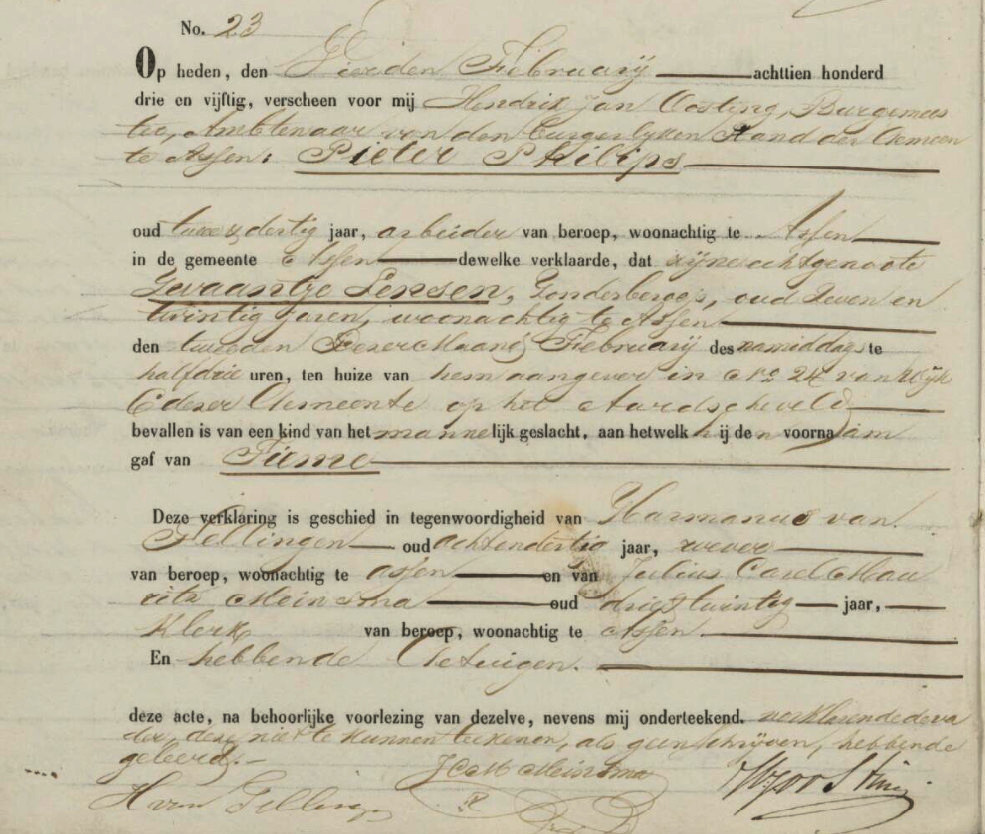 No. 23
Op heden, den Vierden Februarij achttien honderd
drie en vijftig, verscheen voor mij Hendrik Jan Oosting, Burgemees
ter, Ambtenaar van den burgerlyken Stand der Gemeen
te Assen: Pieter Philips
oud twee & dertig jaar, arbeider van beroep, woonachtig te Assen
in de gemeente Assen dewelke verklaarde, dat zijne echtgenoote
Jensen, Zonderberoep, oud Zeven en
twintig Jaren, woonachtig te Assen
den tweeden Dezer Maand Februarij des namiddags te
half drie uren, ten huize van hem aangever in No 24 van Wijk
E dezer Gemeente op het Aardscheveld
bevallen is van een kind van het mannelijk geslacht, aan hetwelk hij den voornaam
gaf van
Deze verklaring is geschied in tegenwoordigheid van Harmannes van
Gellingen oud achtendertig jaar, wever
van beroep, woonachtig te Assen en van Julius Carel Mau
ritz Meinsma oud drie & twintig jaar,
Klerk van beroep, woonachtig te Assen.
En hebbende Getuigen.
deze acte, na behoorlijke voorlezing van dezelve, nevens mij onderteekend. verklarende de va
der, deze niet te kunnen teekenen, als geen schrijven, hebbende
geleerd.
J C M Meinsma
H van Gellingen